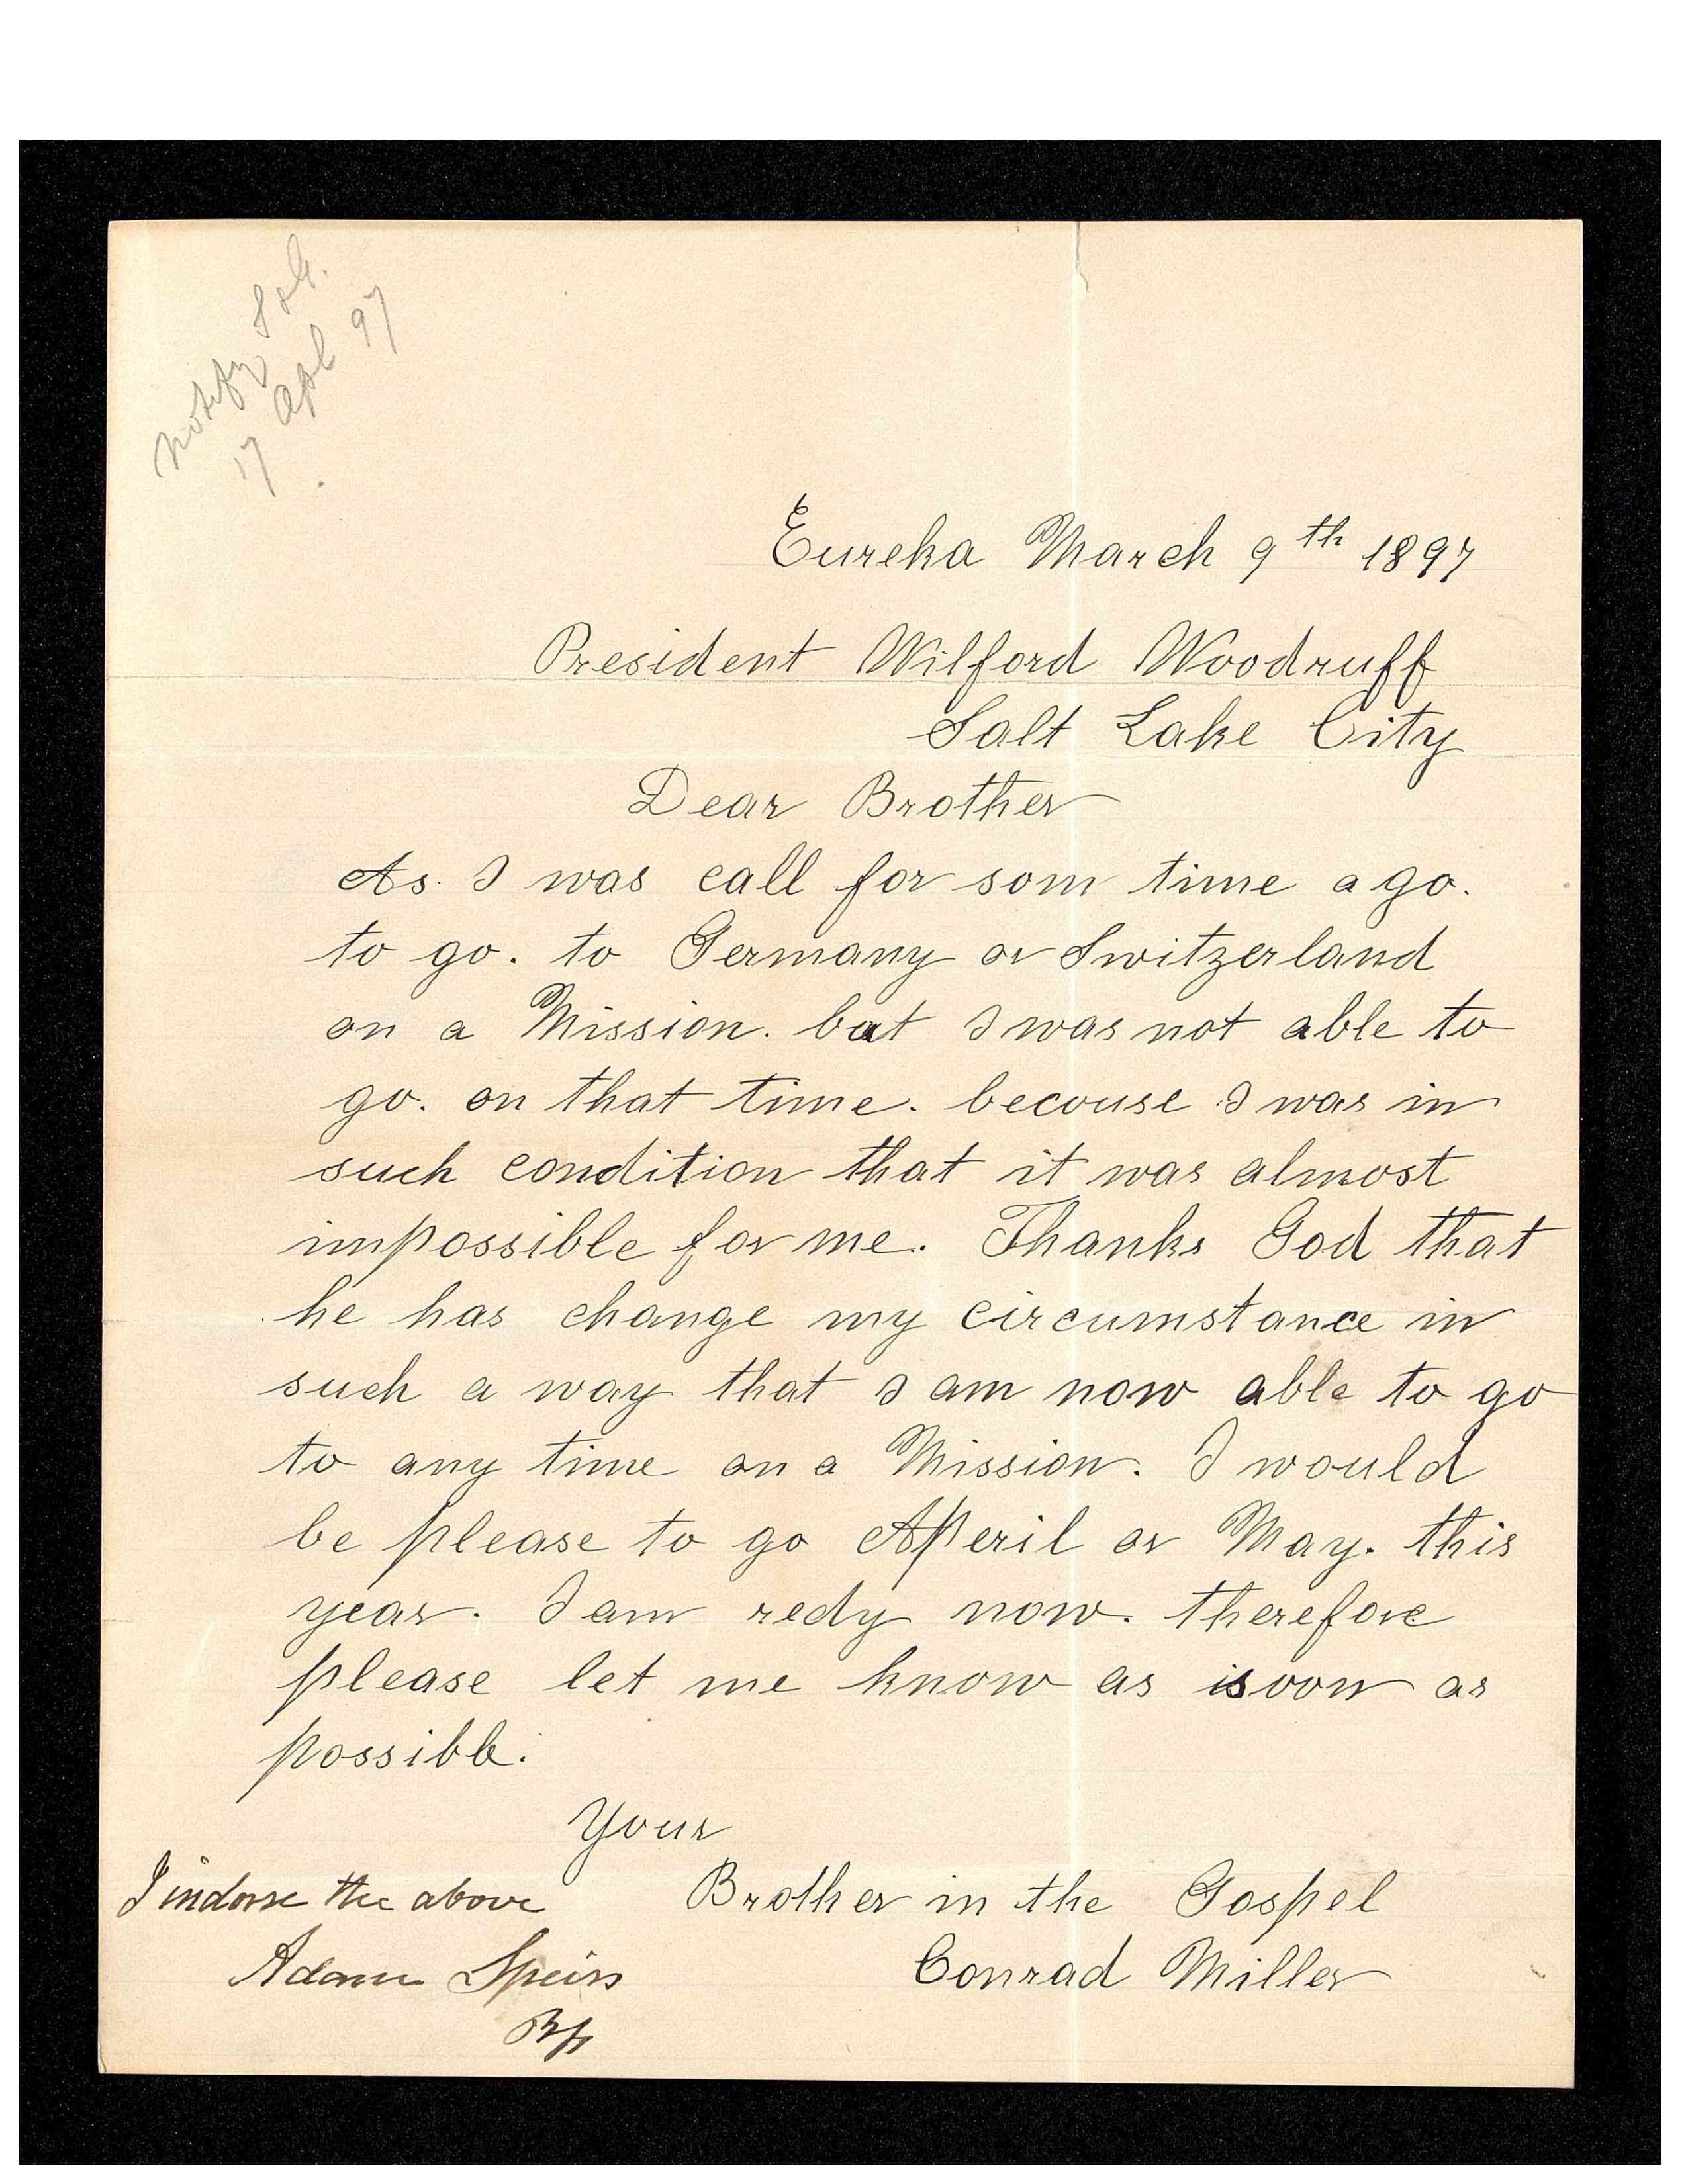 Notify
17 Apl 97
Eureka March 9th 1897
President Wilford Woodruff
Salt Lake City
Dear Brother
As I was call for som time ago.
to go. to Germany or Switzerland
on a Mission. but I was not able to
go. on that time. becouse I was in
such condition that it was almost
impossible for me. Thanks God that
he has change my circumstance in
such a way that I am now able to go
to any time on a Mission. I would
be please to go Aperil or May. this
year. I am redy now. therefore
please let me know as soon as
possible.
Your
I indorse the above Brother in the Gospel
Adam Speirs Conrad Miller
Bp